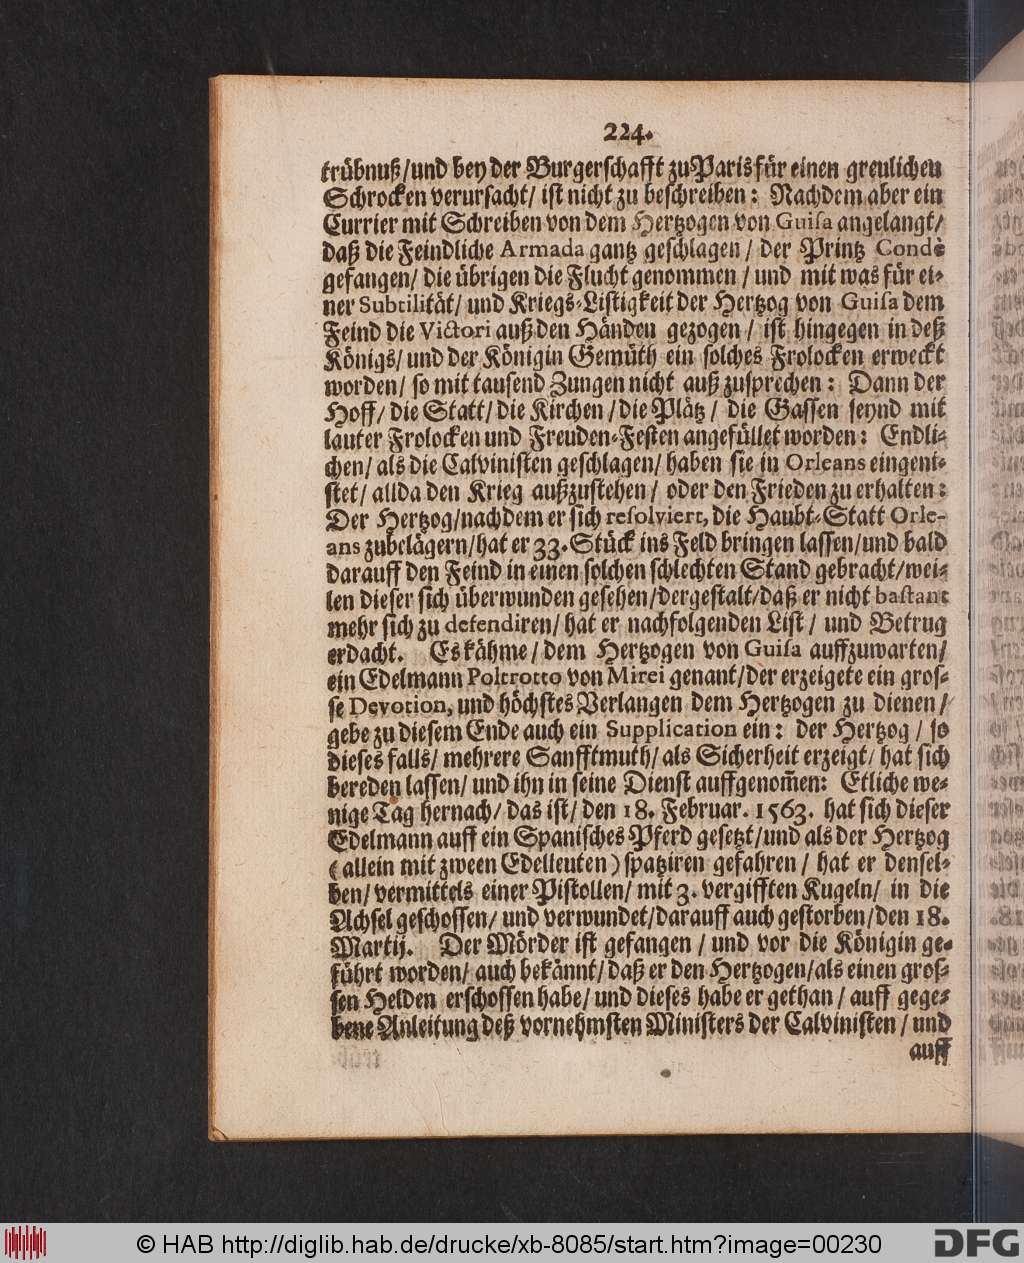 224.
trübnuß/und bey der Burgerschafft zu Paris für einen greulichen
Schrocken verursacht/ ist nicht zu beschreiben: Nachdem aber ein
Currier mit Schreiben von dem Hertzogen von Guisa angelangt/
daß die Feindliche Armada gantz geschlagen / der Printz Condè
gefangen/ die übrigen die Flucht genommen / und mit was für ei-
ner Subtilität/ und Kriegs-Listigkeit der Hertzog von Guisa dem
Feind die Victori auß den Händen gezogen / ist hingegen in deß
Königs/ und der Königin Gemüth ein solches Frolocken erweckt
worden/ so mit tausend Zungen nicht auß zusprechen: Dann der
Hoff/ die Statt/ die Kirchen / die Plätz / die Gassen seynd mit
lauter Frolocken und Freuden-Festen angefüllet worden: Endli-
chen/ als die Calvinisten geschlagen/ haben sie in Orleans eingeni-
stet/ allda den Krieg außzustehen / oder den Frieden zu erhalten:
Der Hertzog/nachdem er sich resolviert, die Haubt-Statt Orle-
ans zubelägern/hat er 33. Stück ins Feld bringen lassen/und bald
darauff den Feind in einen solchen schlechten Stand gebracht/wei-
len dieser sich überwunden gesehen/dergestalt/daß er nicht bastant
mehr sich zu defendiren/ hat er nachfolgenden List / und Betrug
erdacht. Es kähme / dem Hertzogen von Guisa auffzuwarten/
ein Edelmann Poltrotto von Mirei genant/der erzeigete ein gros-
se Devotion, und höchstes Verlangen dem Hertzogen zu dienen /
gebe zu diesem Ende auch ein Supplication ein: der Hertzog / so
dieses falls/ mehrere Sanfftmuth/ als Sicherheit erzeigt/ hat sich
bereden lassen/ und ihn in seine Dienst auffgenom̃en: Etliche we-
nige Tag hernach/ das ist/ den 18. Februar. 1563. hat sich dieser
Edelmann auff ein Spanisches Pferd gesetzt/und als der Hertzog
(allein mit zween Edelleuten) spatziren gefahren / hat er densel-
ben/ vermittels einer Pistollen/ mit 3. vergifften Kugeln/ in die
Achsel geschossen/ und verwundet/darauff auch gestorben/den 18.
Martij. Der Mörder ist gefangen / und vor die Königin ge-
führt worden/ auch bekännt/ daß er den Hertzogen/als einen gros-
sen Helden erschossen habe/ und dieses habe er gethan / auff gege-
bene Anleitung deß vornehmsten Ministers der Calvinisten / und
auff
© HAB http://diglib.hab.de/drucke/xb-8085/start.htm?image=00230
DFG